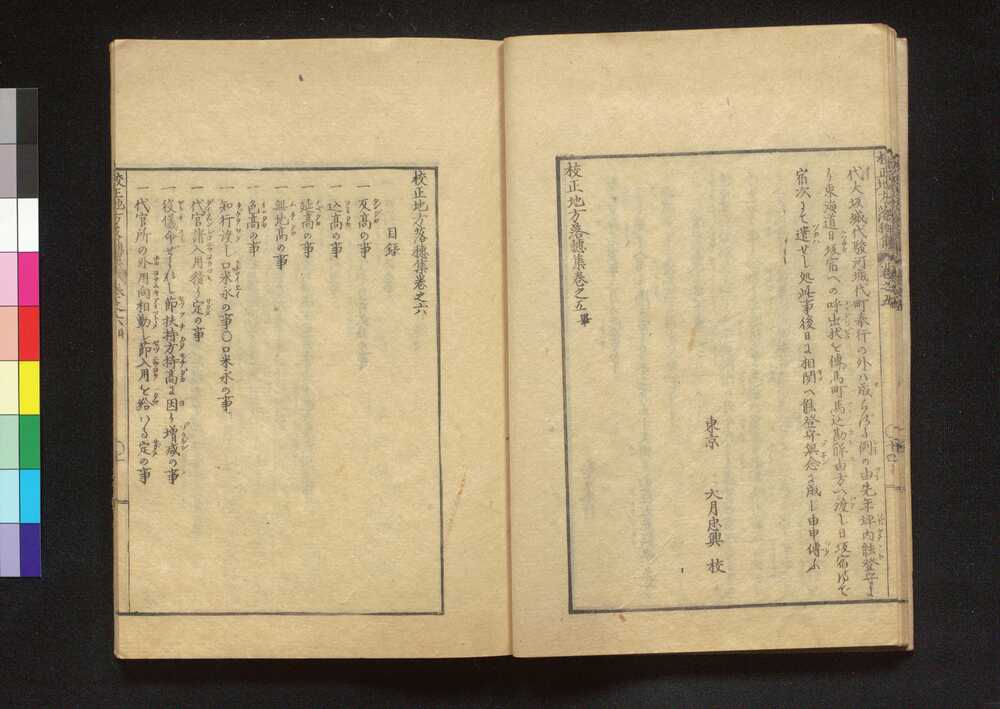 代大坂城代駿河城代町奉行の外ハ成らざる例の由先年坪内能登守よ
り東海道日坂宿への呼出状を傳馬町馬込勘解由方へ渡し日坂宿まで
宿次にて遣せし処此事後日に相聞へ能登守無念に成し由申傳ふ
東京 大月忠興 校
校正地方落穗集巻之五畢
校正地方落穗集巻之六
目録
一 反高の事
一 込高の事
一 延高の事
一 無地高の事
一 色高の事
一 知行渡し口米永の事〇口米永の事
一 代官諸入用積り定の事
一 役儀命ぜられし節扶持方持高に因り增减の事
一 代官所の外用向相勤し節入用を給はる定の事